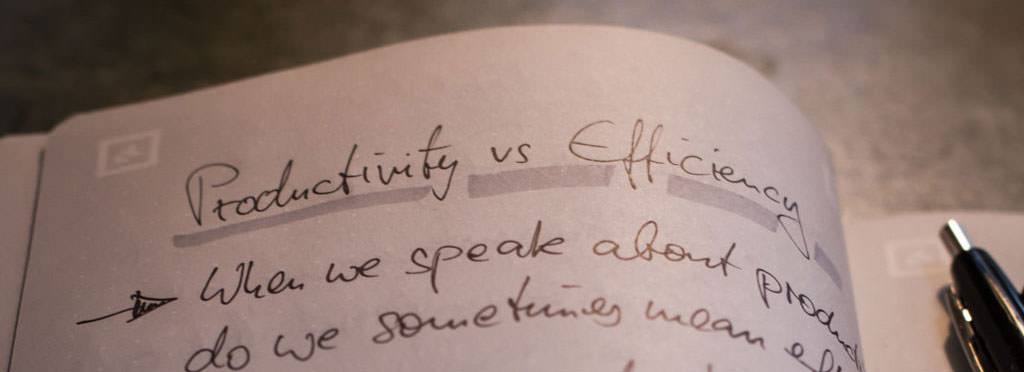 Productivity vs Efficiency
When we speak about produc
do we sometimes mean ef